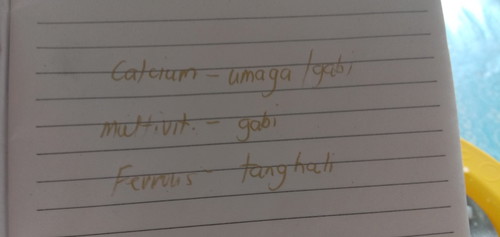 Calcium - umaga /gabi
multivit. - gabi
Ferrous - tanghali